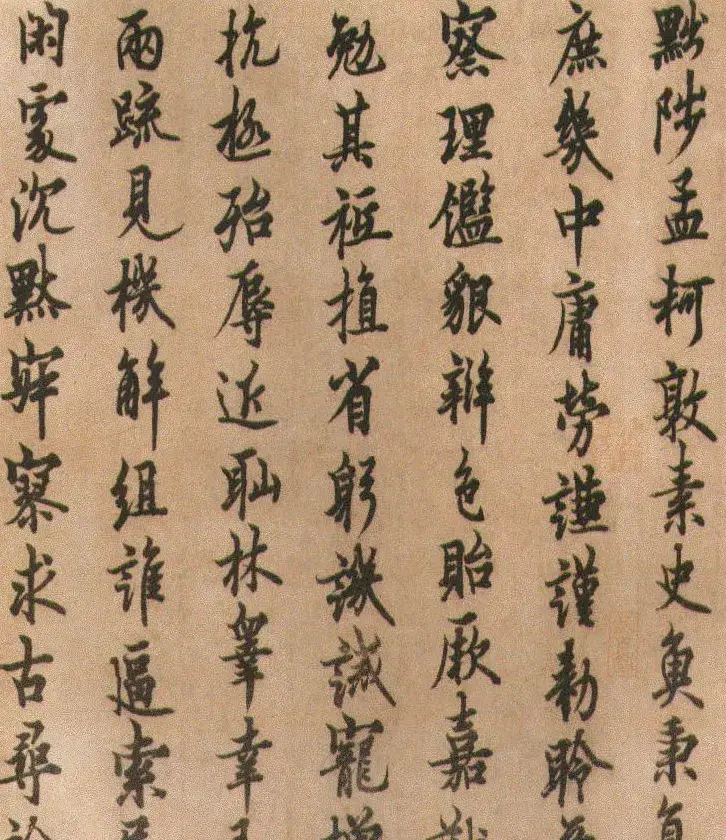 黜陟孟柯敦素史魚秉直
庶幾中庸勞謙謹勅聆音
察理鑑貌辯色貽厥嘉猷
勉其祗植省躬譏誡寵增
抗極殆辱近恥林睾幸即
兩疏見機解組誰逼索居
閑處沉默寂寥求古尋論